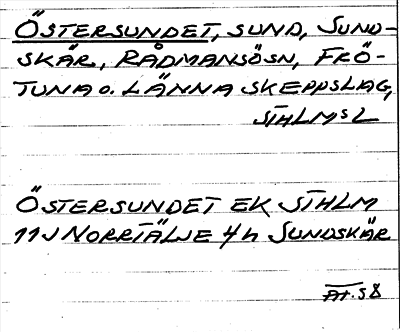 ÖSTERSUNDET, SUND, SUND-
SKÄR, RÅDMANSÖSN, FRÖ-
TUNA o. LÄNNA SKEPPSLAG,
STHLMS L
ÖSTERSUNDET EK STHLM
11J NORRTÄLJE 4h SUNDSKÄR
S8